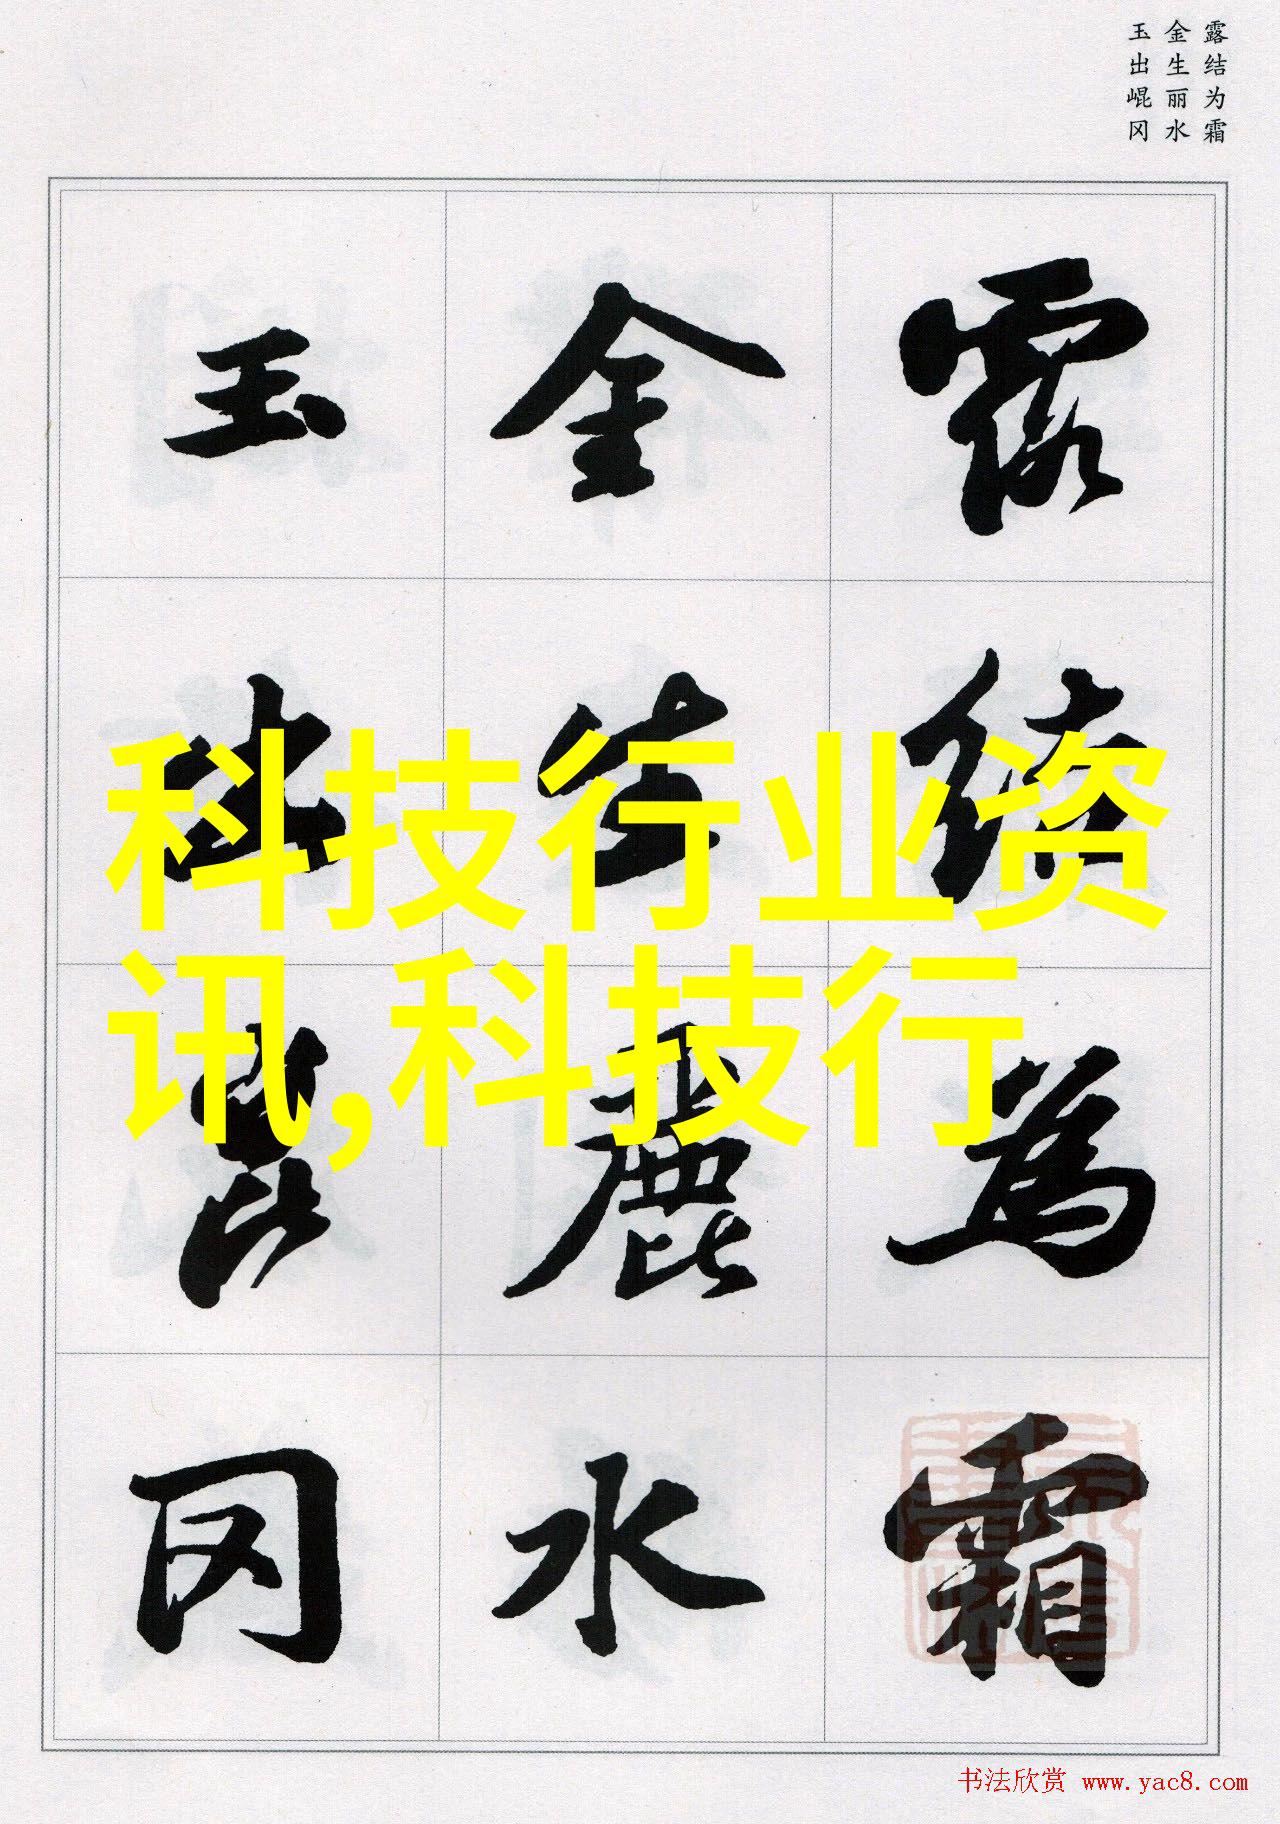 露结为霜
金生丽水
玉出崐冈
露结為霜
金生麗水
玉出崑冈
科技行业资
讯,科技行
书法欣赏 www.yac8.com